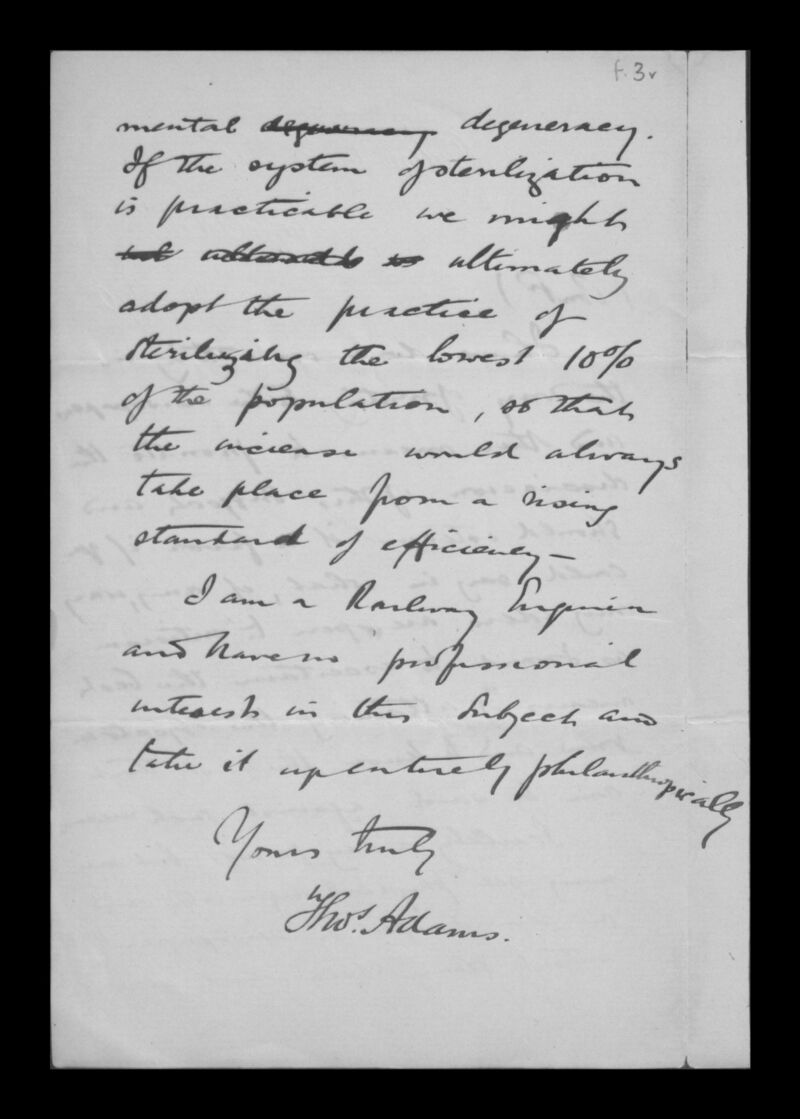 f.3v
mental degeneracy degeneracy.
If the system of sterilization
is practicable we might
ultimately
adopt the practice of
sterilizing the lowest 10%
of the population, so that
the increase would always
take place from a rising
standard of efficiency—
I am a Railway Engineer
and have no professional
interest in this subject and
take it up entirely philanthropically
Yours truly
Thos. Adams.